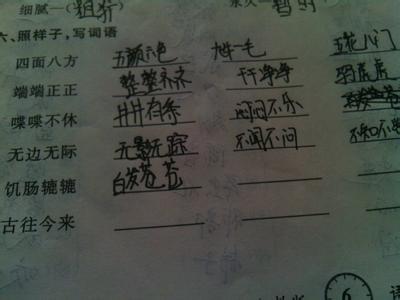 细腻—(粗糙) 永久—(暂时)
六、照样子,写词语
四面八方 五颜六色 九牛一毛 五花八门
端端正正 整整齐齐 干干净净
喋喋不休 井井有条 闷闷不乐
无边无际 无影无踪 不闻不问 不知不
饥肠辘辘 白发苍苍
古往今来
6